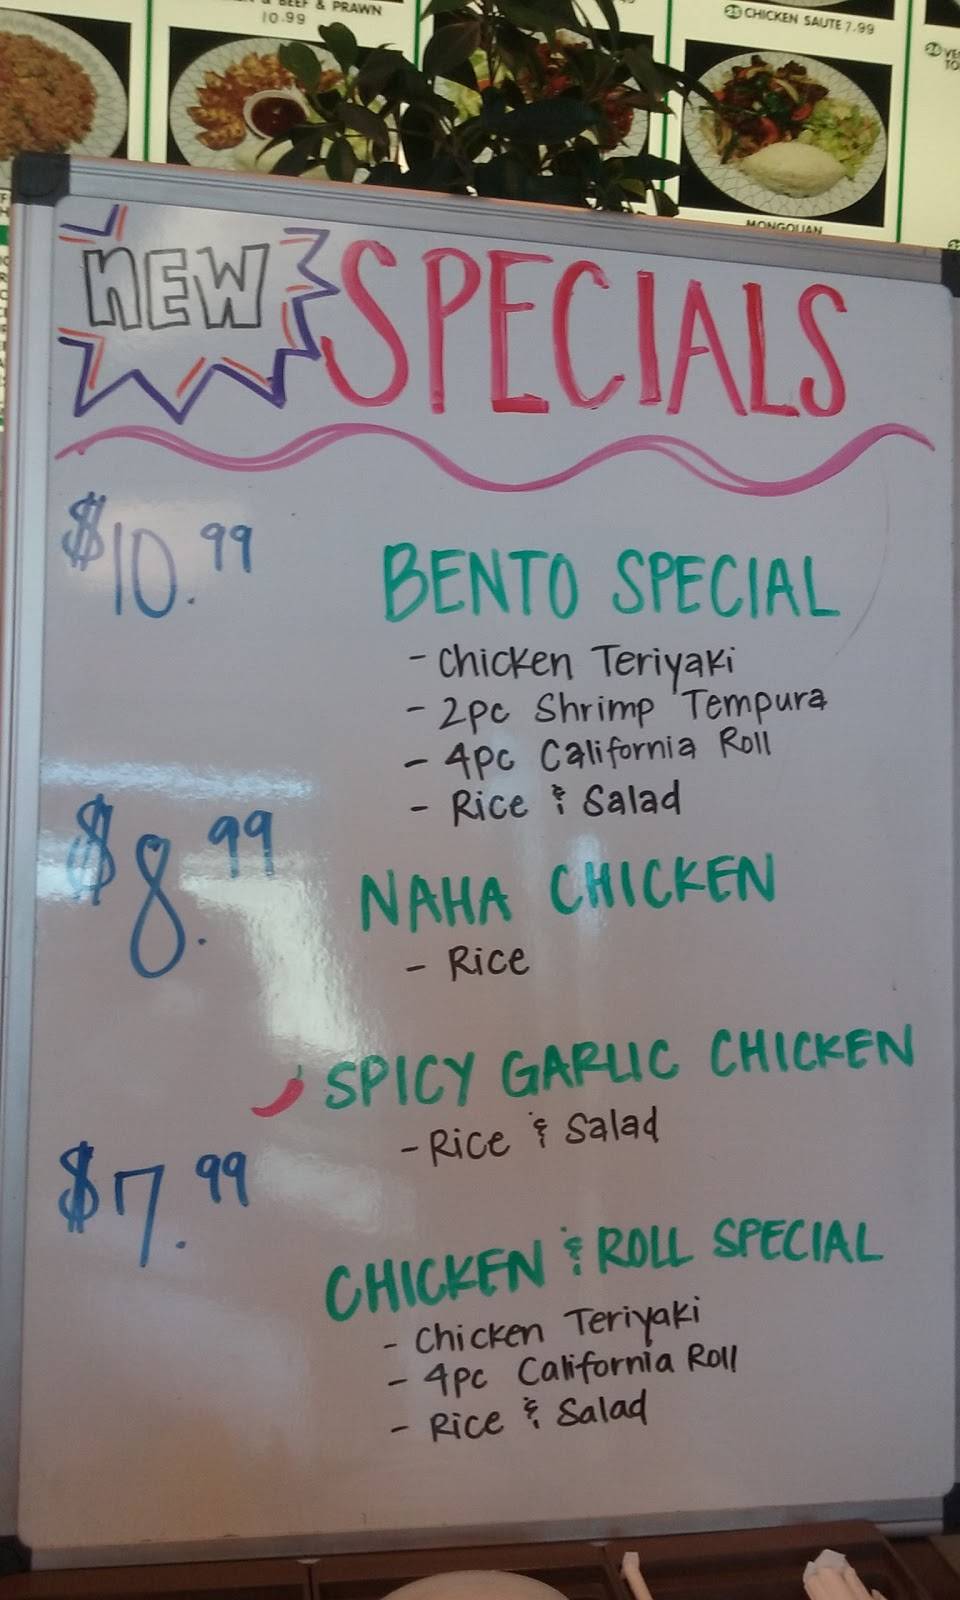 & BEEF & PRAWN
10.99
25 CHICKEN SAUTE 7.99
MONGOLIAN
NEW SPECIALS
$10.99
BENTO SPECIAL
- Chicken Teriyaki
- 2pc Shrimp Tempura
- 4pc California Roll
- Rice & Salad
$8.99
NAHA CHICKEN
- Rice
SPICY GARLIC CHICKEN
- Rice & Salad
$7.99
CHICKEN & ROLL SPECIAL
- Chicken Teriyaki
- 4pc California Roll
- Rice & Salad